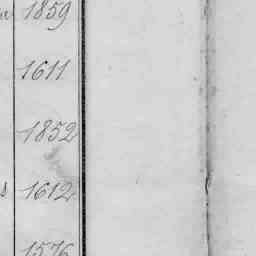 1859
1611
1852
s 1612
1576